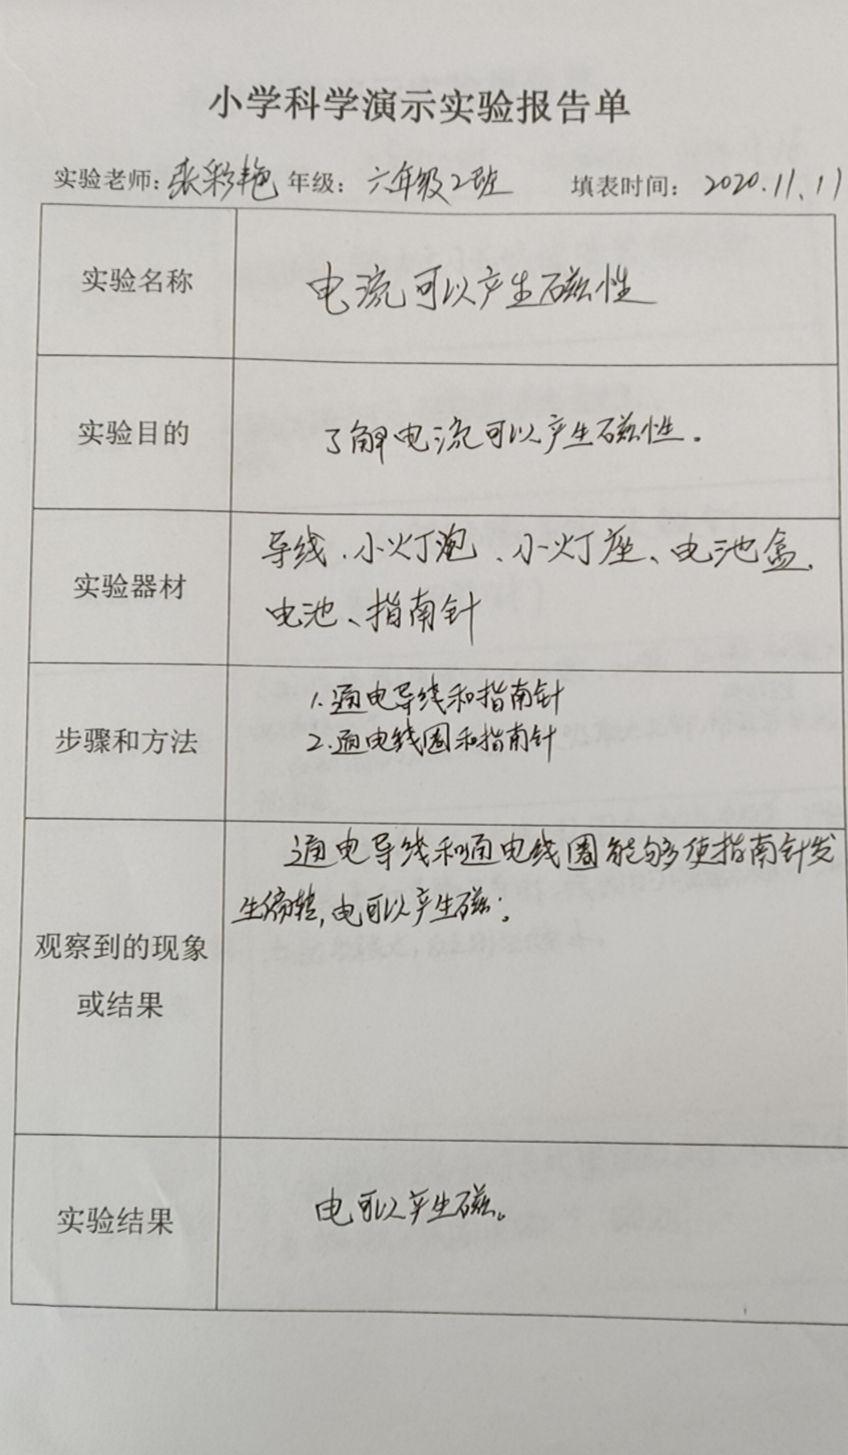 小学科学演示实验报告单
实验老师：张彩艳 年级：六年级2班 填表时间：2020.11.11
实验名称 电流可以产生磁性
实验目的 了解电流可以产生磁性.
导线、小灯泡、小灯座、电池盒、
实验器材
电池、指南针
1.通电导线和指南针
步骤和方法
2.通电线圈和指南针
通电导线和通电线圈能够使指南针发
生偏转,电可以产生磁.
观察到的现象
或结果
实验结果 电可以产生磁。